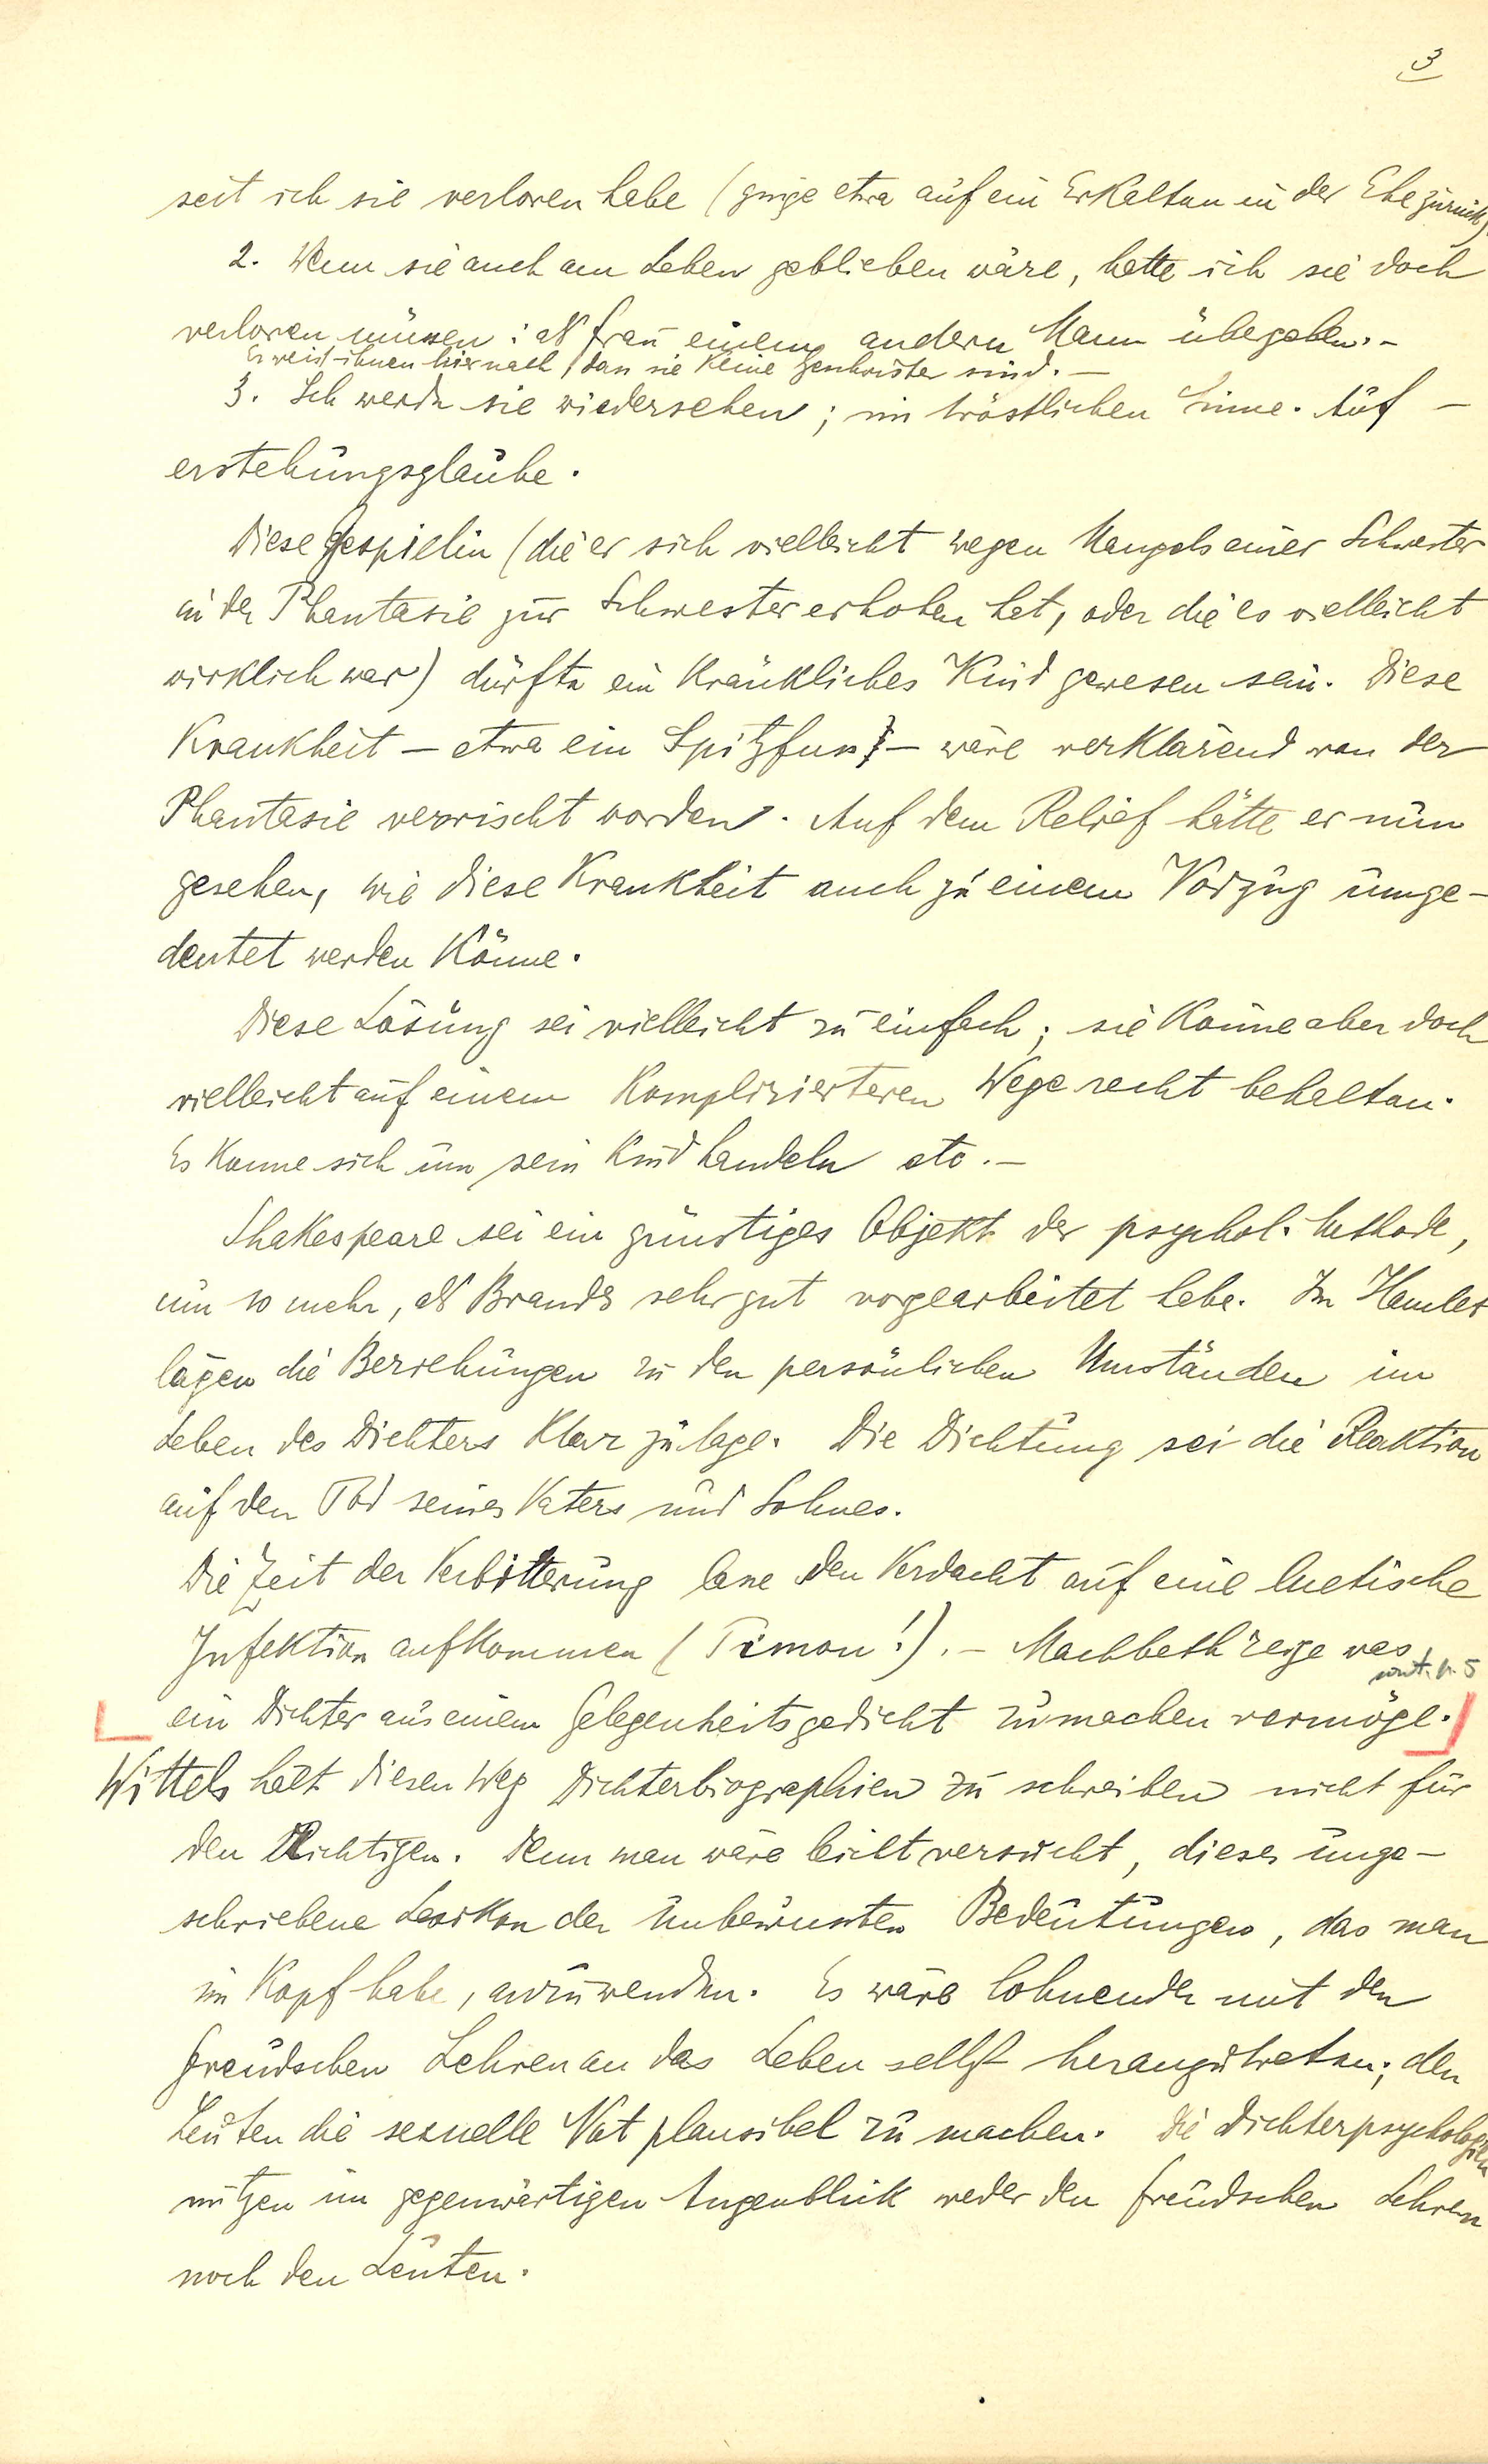 3
seit ich sie verloren habe (ginge etwa auf ein Erkalten in der Ehe zurück).
2. Wenn sie auch am Leben geblieben wäre, hätte ich sie doch
verloren müssen: als Frau einem andern Mann übergeben.-
Er weist ihnen hiernach, dass sie keine Geschwister sind. —
3. Ich werde sie wiedersehen; im tröstlichen Sinne. Auf-
erstehungsglaube.
Diese Gespielin (die er sich vielleicht wegen Mangels einer Schwester
in der Phantasie zur Schwester erhoben hat, oder die es vielleicht
wirklich war) dürfte ein kränkliches Kind gewesen sein. Diese
Krankheit – etwa ein Spitzfuss – wäre verklärend von der
Phantasie verwischt worden. Auf dem Relief hätte er nun
gesehen, wie diese Krankheit auch zu einem Vorzug umge-
deutet werden könne.
Diese Lösung sei vielleicht zu einfach; sie könne aber doch
vielleicht auf einem komplizierteren Wege recht behalten.
Es könne sich um sein Kind handeln etc.–
Shakespeare sei ein günstiges Objekt der psychol. Methode,
um so mehr, als Brandes sehr gut vorgearbeitet habe. Im Hamlet
lägen die Beziehungen zu den persönlichen Umständen im
Leben des Dichters klar zutage. Die Dichtung sei die Reaktion
auf den Tod seines Vaters und Sohnes.
Die Zeit der Verbitterung lasse den Verdacht auf eine luetische
Infektion aufkommen (Timon!).- Machbeth zeige was
ein Dichter aus einem Gelegenheitsgedicht zu machen vermöge.
Wittels hält diesen Weg Dichterbiographien zu schreiben nicht für
den Richtigen. Denn man wäre leicht versucht, dieses unge-
schriebene Lexikon der unbewussten Bedeutungen, das man
im Kopf habe, anzuwenden. Es wäre lohnender mit den
Freudschen Lehren an das Leben selbst heranzutreten; den
Leuten die sexuelle Not plausibel zu machen. Die Dichterpsychologien
nützen im gegenwärtigen Augenblick weder den Freudschen Lehren
noch den Leuten.